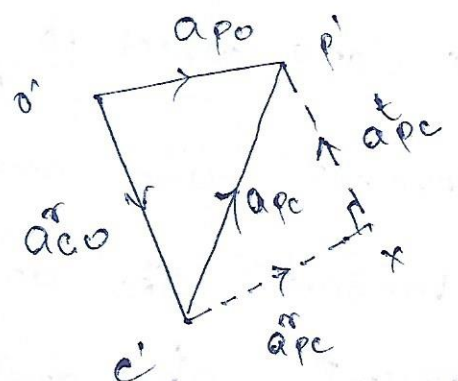 apo
o'
p'
a^t pc
a^r co
apc
x
a^r pc
c'